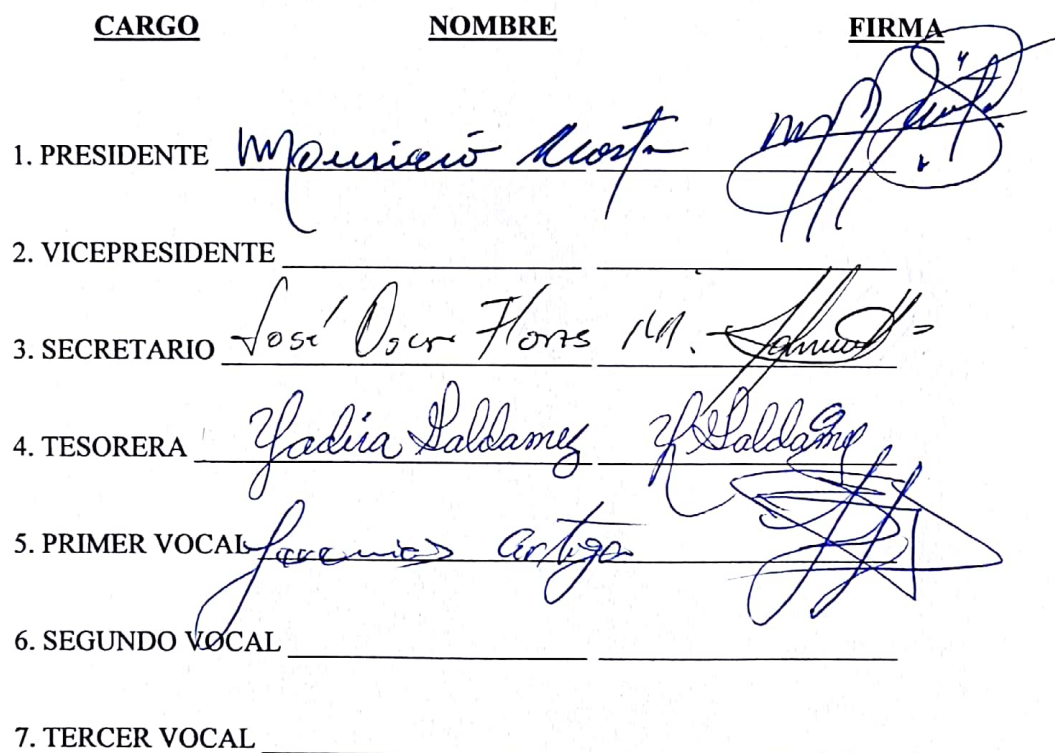 CARGO NOMBRE FIRMA
1. PRESIDENTE Mauricio Acosta
2. VICEPRESIDENTE
3. SECRETARIO José Oscar Flores M.
4. TESORERA Yadira Saldamez Y Saldame
5. PRIMER VOCAL Jeremias Artiga
6. SEGUNDO VOCAL
7. TERCER VOCAL